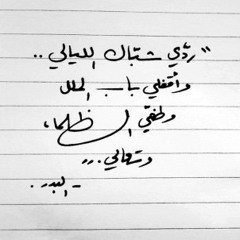 "ردّي شتات الليالي ..
وأقفلي باب الملل
وطفّي الظلما،
وتعالي ...
- البدر .